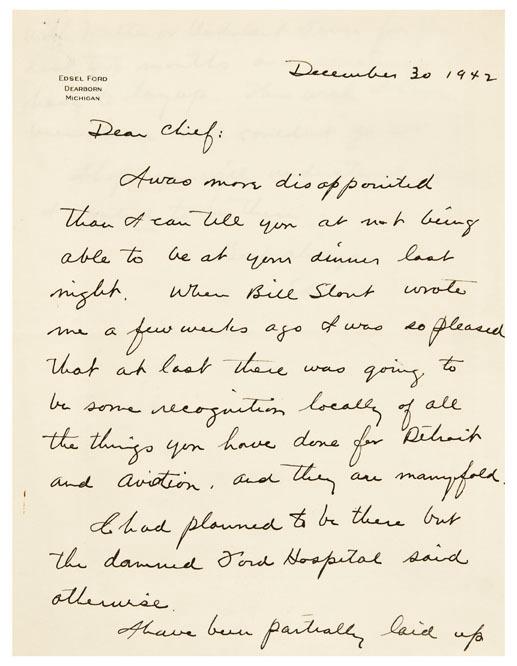 December 30 1942
EDSEL FORD
DEARBORN
MICHIGAN
Dear Chief:
I was more disappointed
than I can tell you at not being
able to be at your dinner last
night. When Bill Stout wrote
me a few weeks ago I was so pleased
that at last there was going to
be some recognition locally of all
the things you have done for Detroit
and aviation, and they are manyfold.
I had planned to be there but
the damned Ford Hospital said
otherwise.
I have been partially laid up